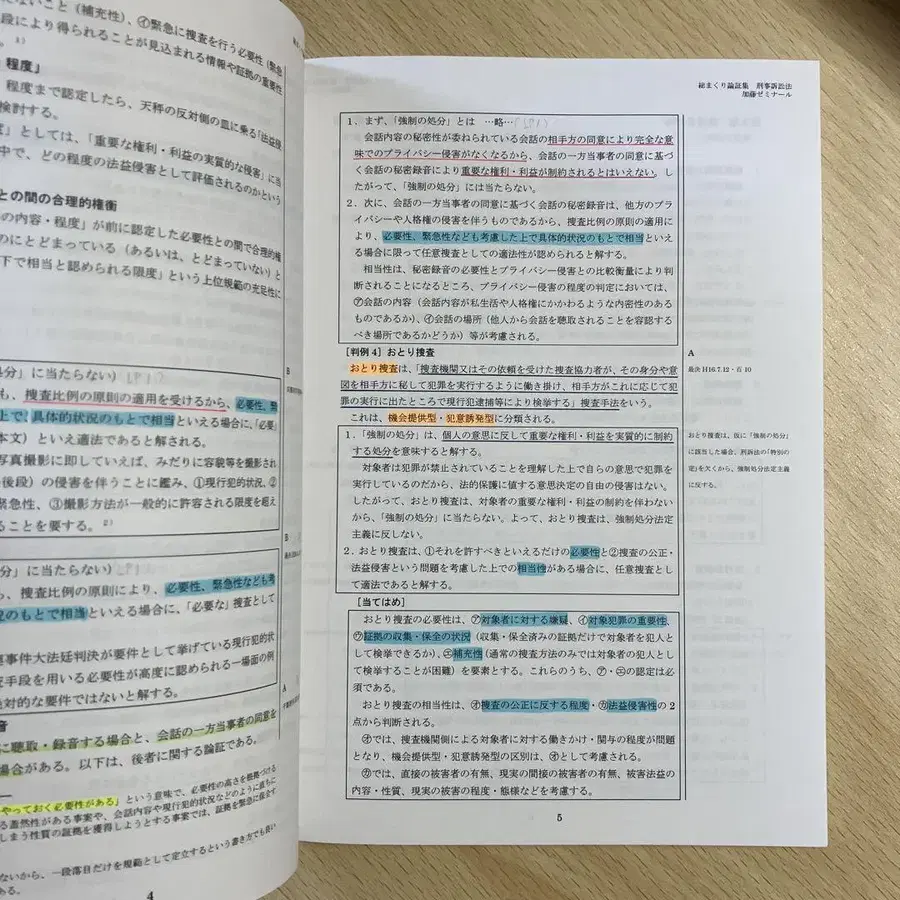 ないこと（補充性）、㋑緊急に捜査を行う必要性（緊急
段により得られることが見込まれる情報や証拠の重要性
程度」
程度まで認定したら、天秤の反対側の皿に乗る「法益侵
検討する。
度」としては、「重要な権利・利益の実質的な侵害」に当
中で、どの程度の法益侵害として評価されるのかという
との間の合理的権衡
の内容・程度」が前に認定した必要性との間で合理的権
のにとどまっている（あるいは、とどまっていない）と
下で相当と認められる限度」という上位規範の充足性に
処分」に当たらない）
も、捜査比例の原則の適用を受けるから、必要性、緊
上で、具体的状況のもとで相当といえる場合に、「必要」
本文）といえ適法であると解される。
写真撮影に即していえば、みだりに容貌等を撮影され
後段）の侵害を伴うことに鑑み、①現行犯的状況、②
緊急性、③撮影方法が一般的に許容される限度を超え
ることを要する。2）
分」に当たらない）
ら、捜査比例の原則により、必要性、緊急性なども考
況のもとで相当といえる場合に、「必要な」捜査として
事件大法廷判決が要件として挙げている現行犯的状
査手段を用いる必要性が高度に認められる一場面の例
絶対的な要件ではないと解する。
音
に聴取・録音する場合と、会話の一方当事者の同意を
場合がある。以下は、後者に関する論証である。
やっておく必要性がある」という意味で、必要性の高さを根拠づける
る蓋然性がある事案や、会話内容や現行犯的状況などのように直ちに
しまう性質の証拠を獲得しようとする事案では、証拠を緊急に保全す
ないから、一段落目だけを規範として定立するという書き方でも良い
ある。
4
B
B
A
総まくり論証集　刑事訴訟法
加藤ゼミナール
1．まず、「強制の処分」とは　…略…
会話内容の秘密性が委ねられている会話の相手方の同意により完全な意
味でのプライバシー侵害がなくなるから、会話の一方当事者の同意に基づ
く会話の秘密録音により重要な権利・利益が制約されるとはいえない。し
たがって、「強制の処分」には当たらない。
2．次に、会話の一方当事者の同意に基づく会話の秘密録音は、他方のプラ
イバシーや人格権の侵害を伴うものであるから、捜査比例の原則の適用に
より、必要性、緊急性なども考慮した上で具体的状況のもとで相当といえ
る場合に限って任意捜査としての適法性が認められると解する。
相当性は、秘密録音の必要性とプライバシー侵害との比較衡量により判
断されることになるところ、プライバシー侵害の程度の判定においては、
㋐会話の内容（会話内容が私生活や人格権にかかわるような内密性のある
ものであるか）、㋑会話の場所（他人から会話を聴取されることを容認する
べき場所であるかどうか）等が考慮される。
［判例 4］おとり捜査
おとり捜査は、「捜査機関又はその依頼を受けた捜査協力者が、その身分や意
図を相手方に秘して犯罪を実行するように働き掛け、相手方がこれに応じて犯
罪の実行に出たところで現行犯逮捕等により検挙する」捜査手法をいう。
これは、機会提供型・犯意誘発型に分類される。
1．「強制の処分」は、個人の意思に反して重要な権利・利益を実質的に制約
する処分を意味すると解する。
対象者は犯罪が禁止されていることを理解した上で自らの意思で犯罪を
実行しているのだから、法的保護に値する意思決定の自由の侵害はない。
したがって、おとり捜査は、対象者の重要な権利・利益の制約を伴わない
から、「強制の処分」に当たらない。よって、おとり捜査は、強制処分法定
主義に反しない。
2．おとり捜査は、①それを許すべきといえるだけの必要性と②捜査の公正・
法益侵害という問題を考慮した上での相当性がある場合に、任意捜査とし
て適法であると解する。
［当てはめ］
おとり捜査の必要性は、㋐対象者に対する嫌疑、㋑対象犯罪の重要性、
㋒証拠の収集・保全の状況（収集・保全済みの証拠だけで対象者を犯人と
して検挙できるか）、㋓補充性（通常の捜査方法のみでは対象者の犯人とし
て検挙することが困難）を要素とする。これらのうち、㋐・㋓の認定は必
須である。
おとり捜査の相当性は、㋔捜査の公正に反する程度・㋕法益侵害性の 2
点から判断される。
㋔では、捜査機関側による対象者に対する働きかけ・関与の程度が問題
となり、機会提供型・犯意誘発型の区別は、㋔として考慮される。
㋕では、直接の被害者の有無、現実の間接の被害者の有無、被害法益の
内容・性質、現実の被害の程度・態様などを考慮する。
A
最決 H16.7.12・百 10
おとり捜査は、仮に「強制の処分」
に該当した場合、刑訴法の「特別の
定」を欠くから、強制処分法定主義
に反する。
5